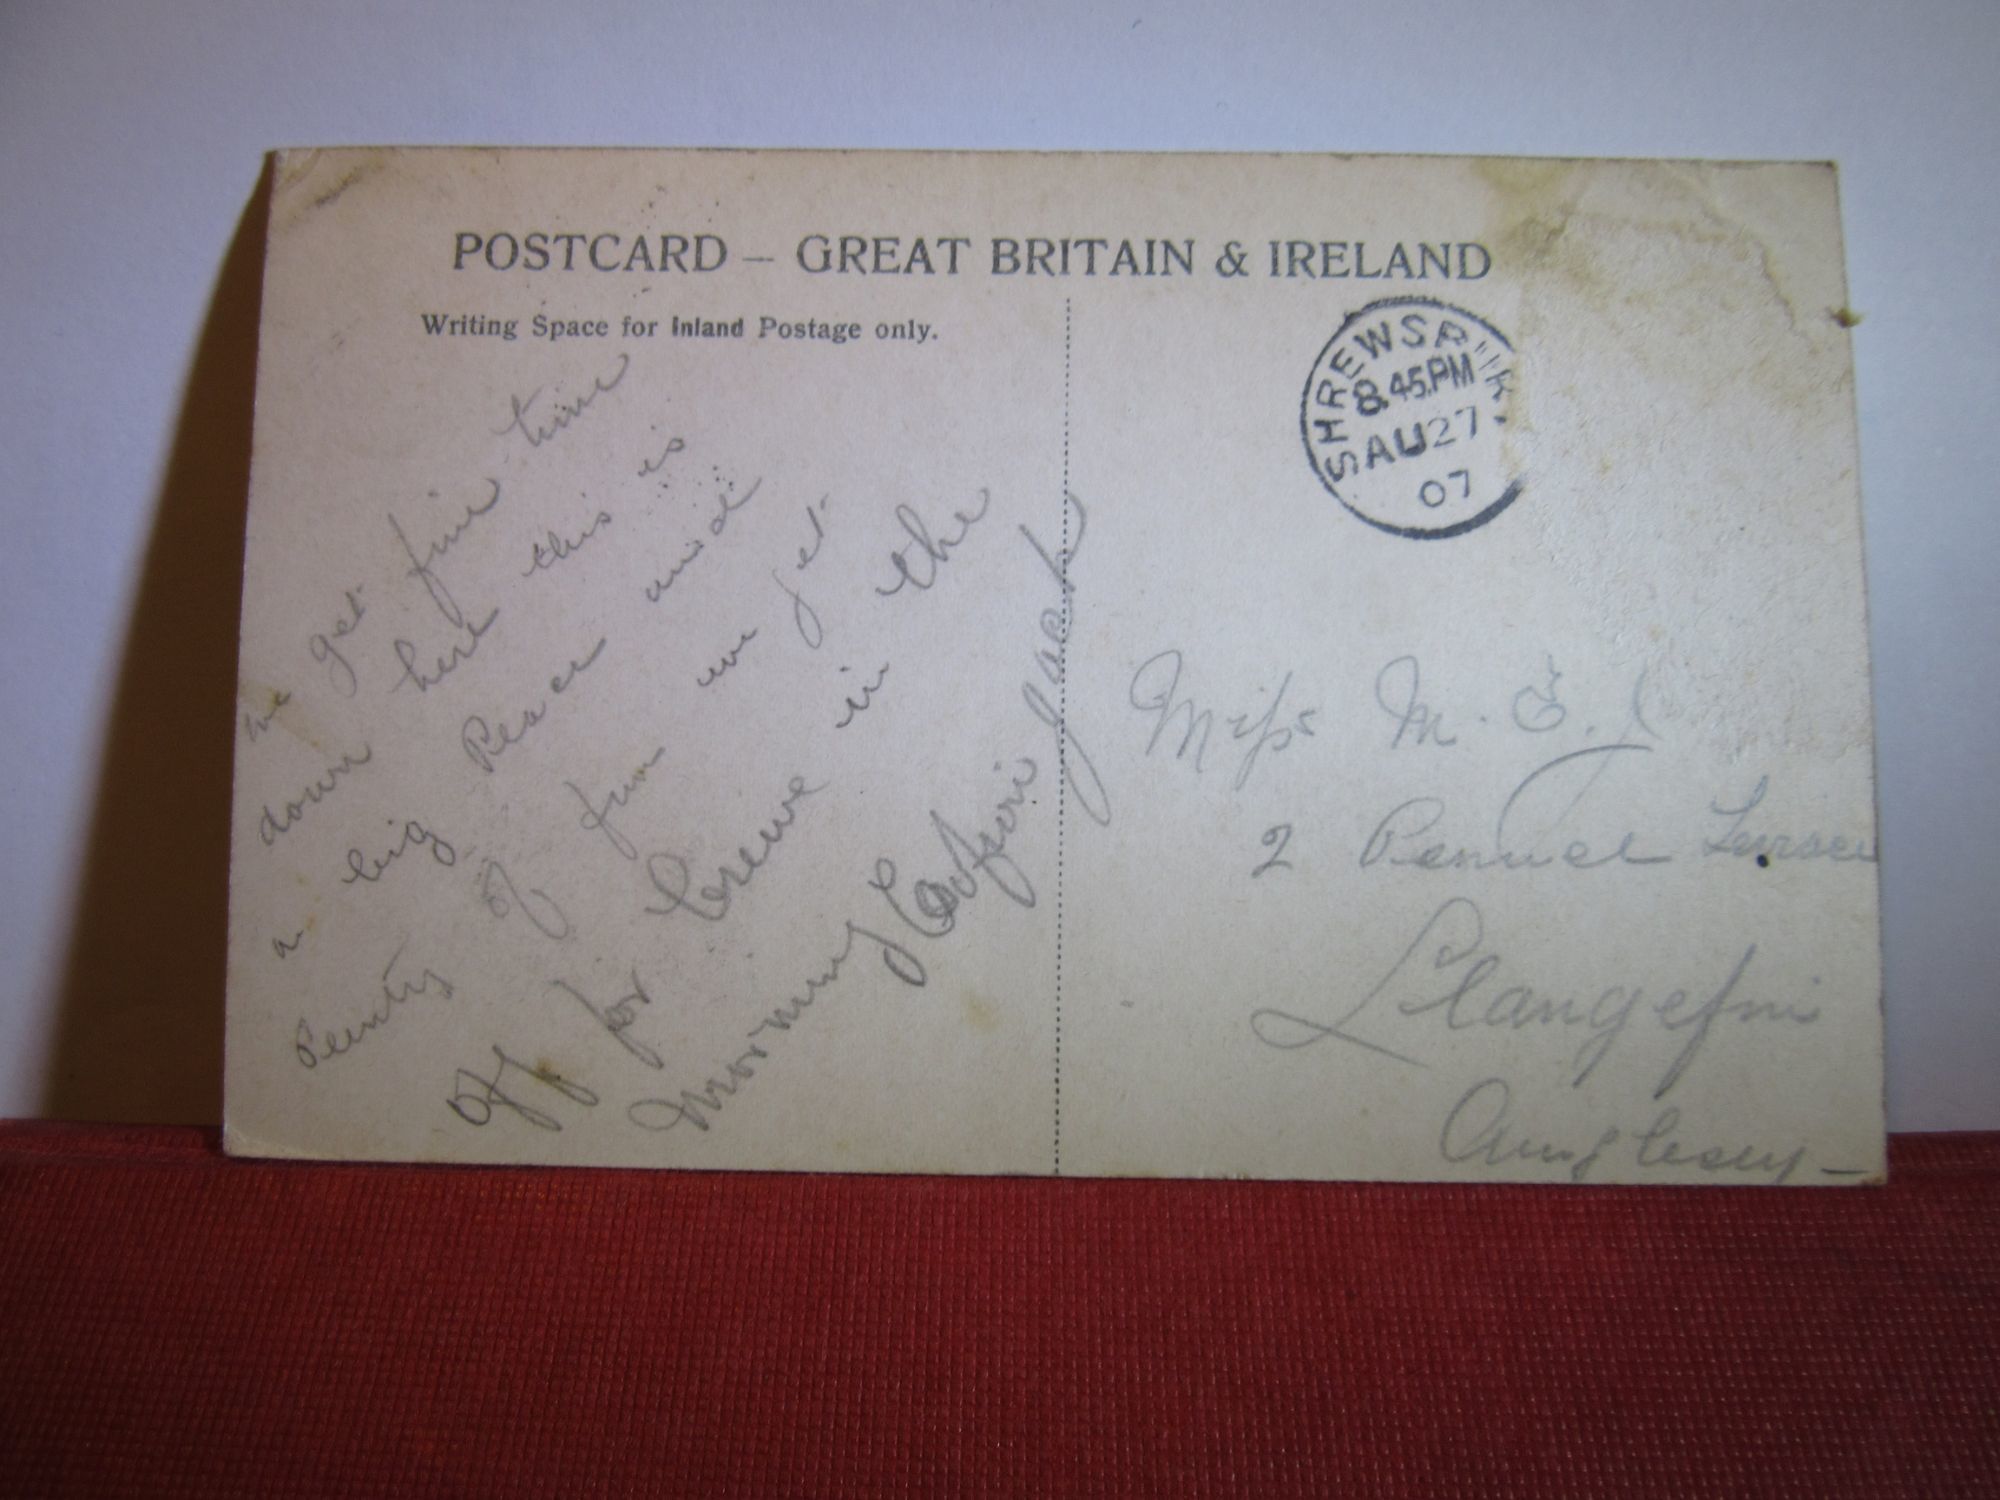 POSTCARD – GREAT BRITAIN & IRELAND
Writing Space for Inland Postage only.
SHREWSBURY
8.45PM
AU27
07
we get fine time
down here this is
a big Place and
Plenty of fun we get
off for Crewe in the
morning
Miss M. E. J
2 Penuel Terrace
Llangefni
Anglesey –